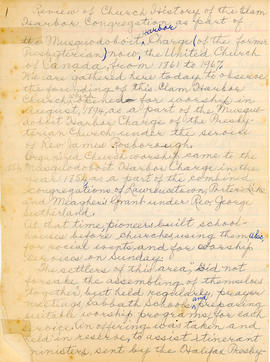 1 Review of Church History of the Clam
Harbor Congregation as part of
the Musquodoboit Harbor Charge (of the former
Presbyterian) now the United Church
of Canada, from 1861 to 1967.
We are gathered here today to observe
the founding of this Clam Harbor
Church opened for worship in
August, as a part of the Musquo-
doboit Harbor Charge of the Presby-
terian Church under the service
of Rev. James Rosborough.
Organized Church worship came to the
Musquodoboit Harbor Charge in the
year as a part of the combined
congregations of Lawrencetown, Porters Lake
and Meaghers Grant under Rev. George
Sutherland.
At that time, pioneers built school-
houses before churches, using them also,
for social events, and for worship
services on Sunday.
The settlers of this area, "Did not
forsake the assembling of themselves
together", but held regularly, prayer
meetings, Sabbath Schools, and preparing
suitable worship programs, for each
service, an offering was taken and
held in reserve, to assist itinerant
ministers, sent by the Halifax Presby-